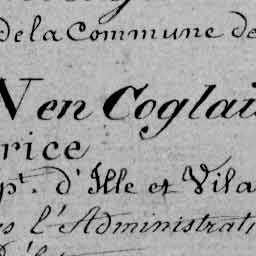 de la Commune de
N en Coglais
rice
pt. d'Ille et Vila
s l'Administrati